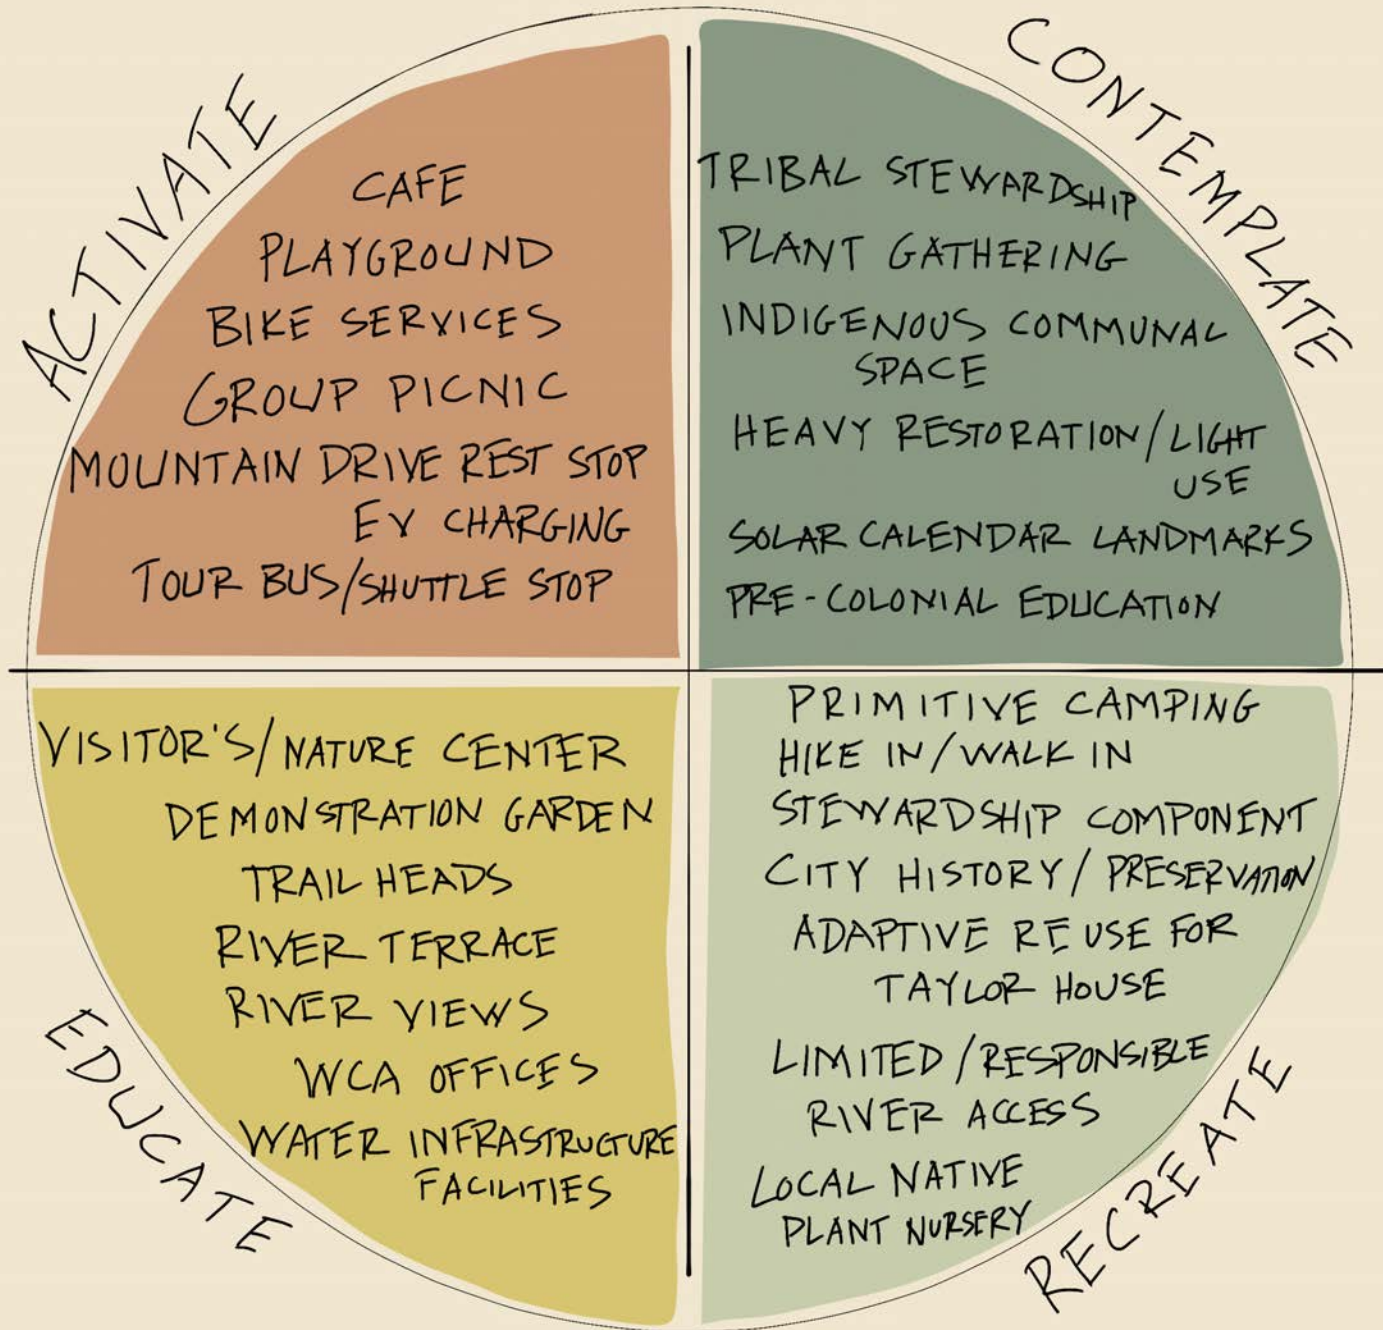 ACTIVATE
CAFE
PLAYGROUND
BIKE SERVICES
GROUP PICNIC
MOUNTAIN DRIVE REST STOP
EV CHARGING
TOUR BUS/SHUTTLE STOP
CONTEMPLATE
TRIBAL STEWARDSHIP
PLANT GATHERING
INDIGENOUS COMMUNAL
SPACE
HEAVY RESTORATION/LIGHT
USE
SOLAR CALENDAR LANDMARKS
PRE-COLONIAL EDUCATION
EDUCATE
VISITOR'S/NATURE CENTER
DEMONSTRATION GARDEN
TRAIL HEADS
RIVER TERRACE
RIVER VIEWS
WCA OFFICES
WATER INFRASTRUCTURE
FACILITIES
RECREATE
PRIMITIVE CAMPING
HIKE IN/WALK IN
STEWARDSHIP COMPONENT
CITY HISTORY/PRESERVATION
ADAPTIVE REUSE FOR
TAYLOR HOUSE
LIMITED/RESPONSIBLE
RIVER ACCESS
LOCAL NATIVE
PLANT NURSERY